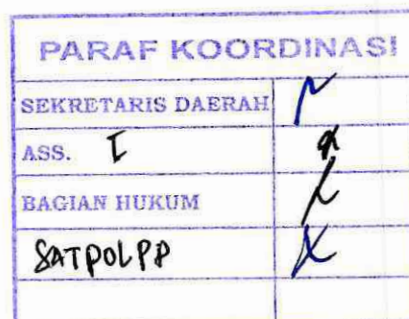 PARAF KOORDINASI
SEKRETARIS DAERAH
ASS. I
BAGIAN HUKUM
SATPOLPP